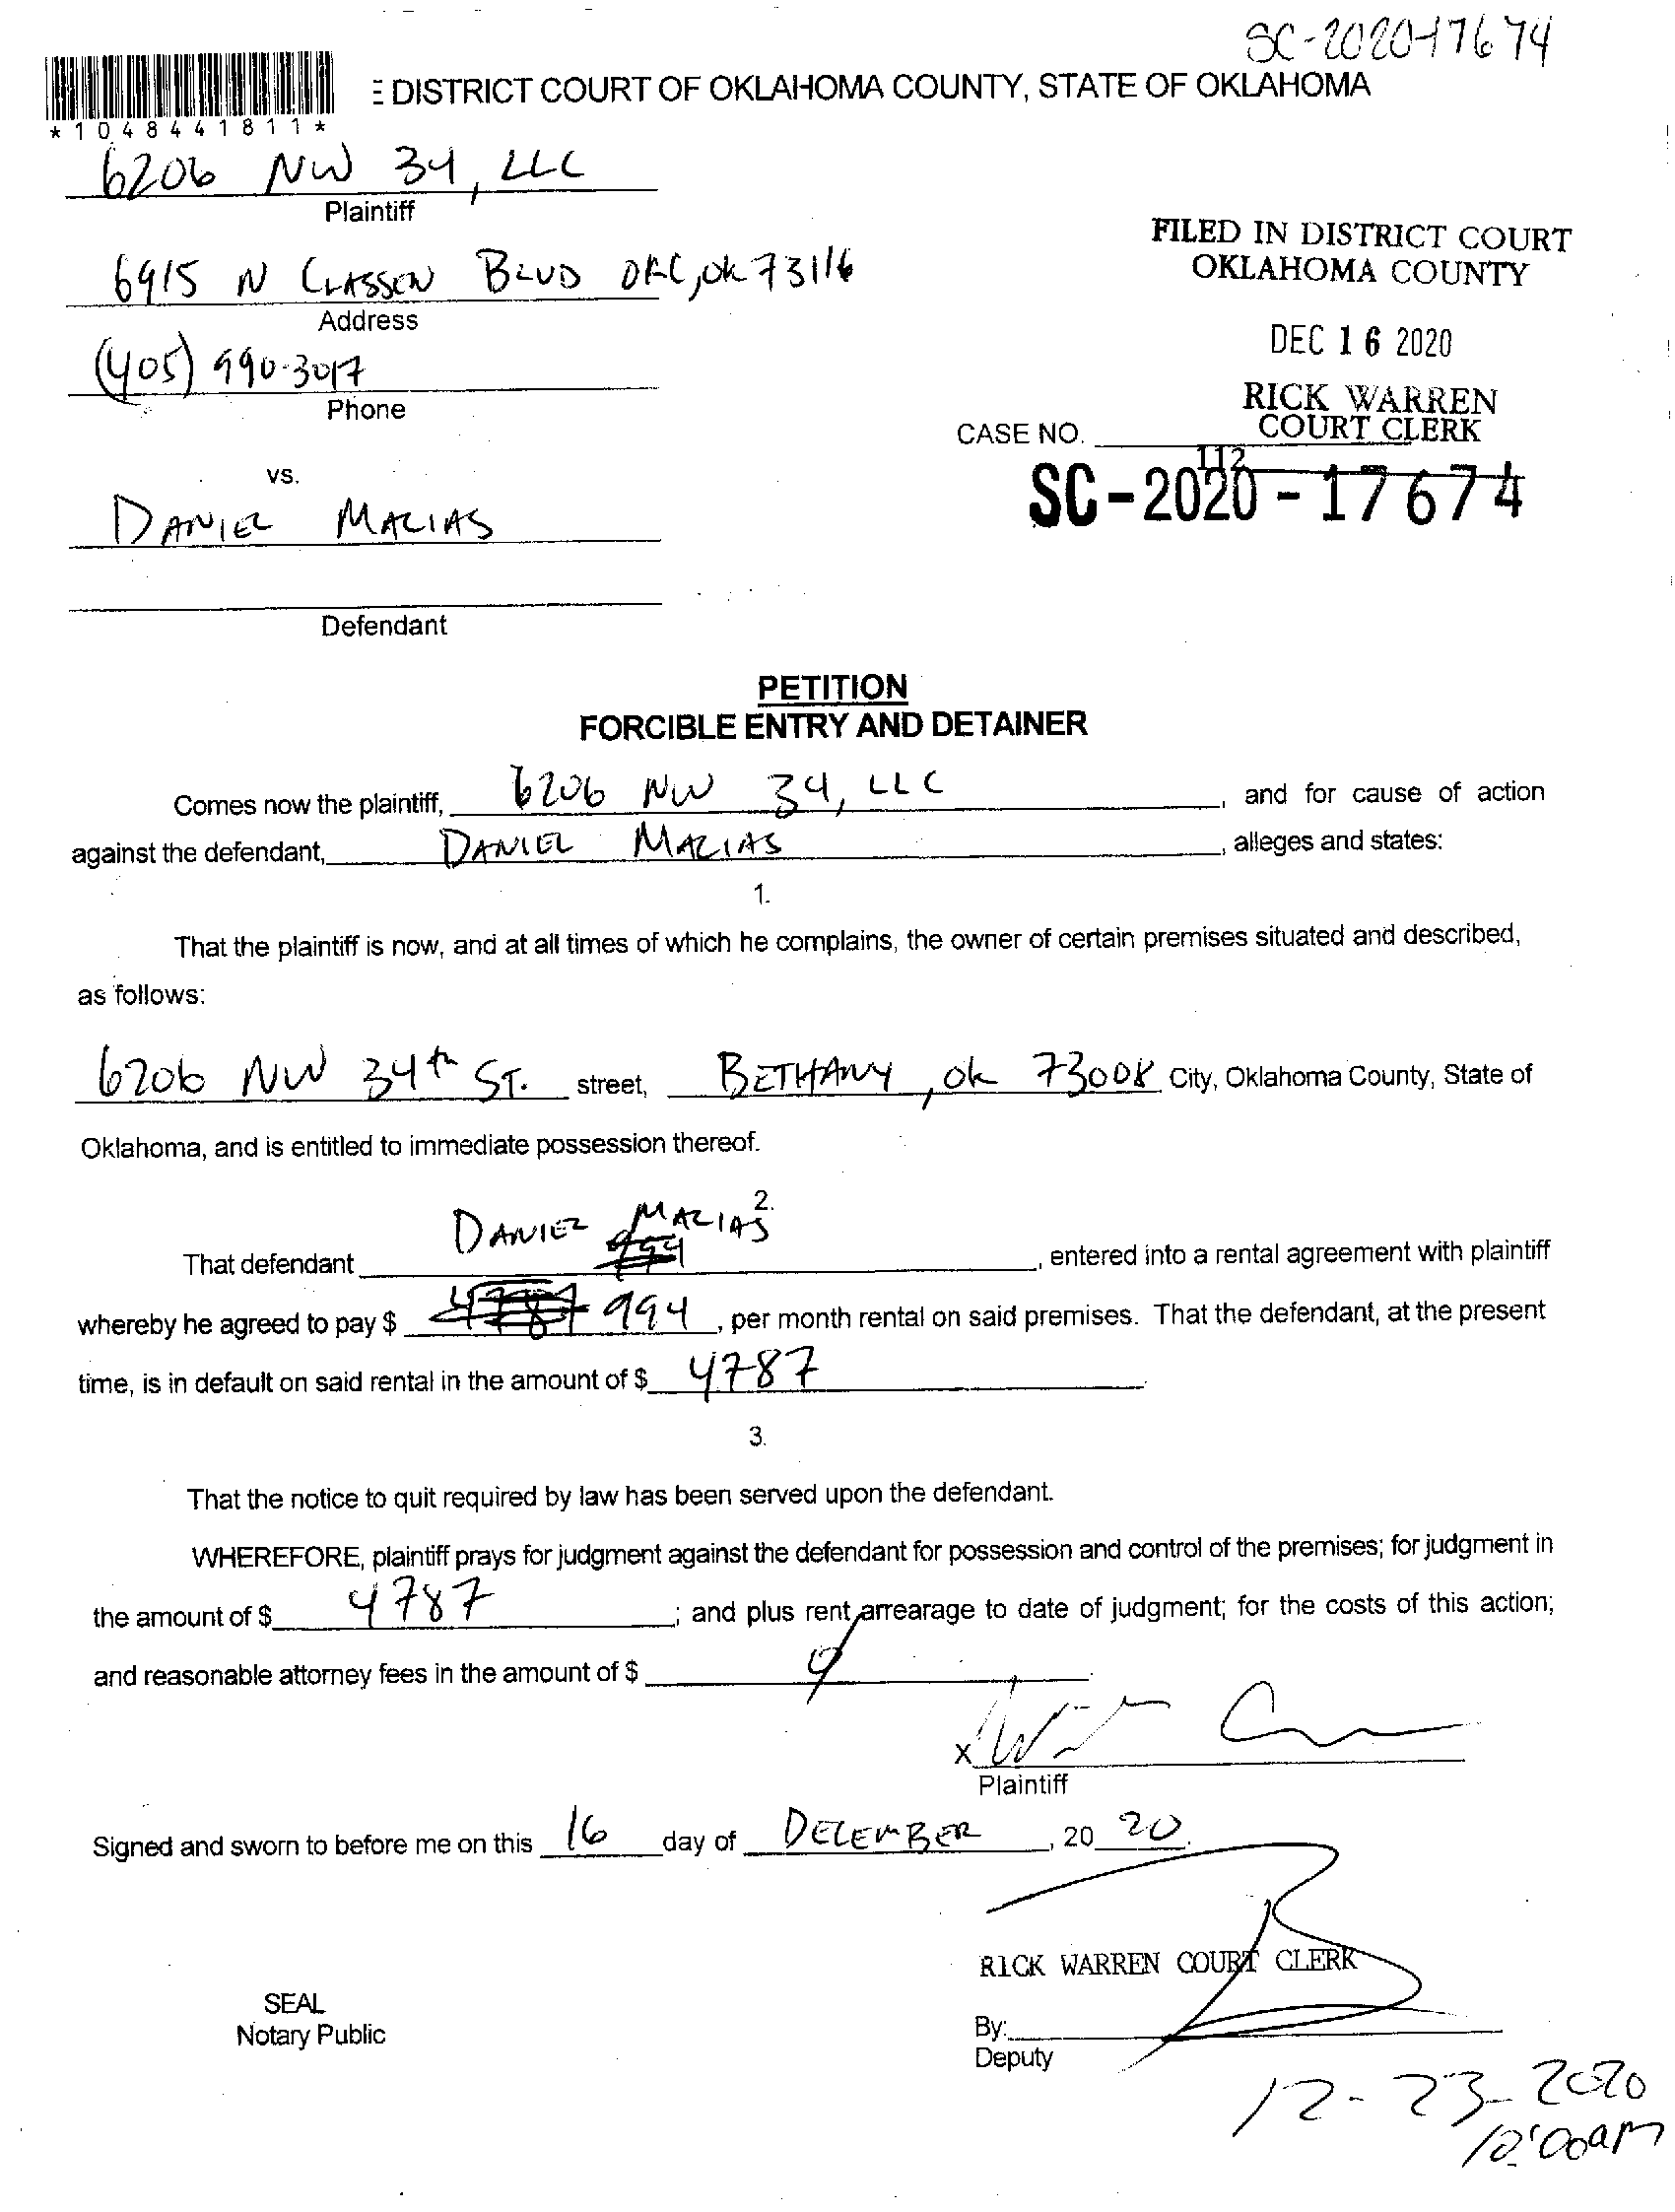 SC-2020-17674
E DISTRICT COURT OF OKLAHOMA COUNTY, STATE OF OKLAHOMA
*1048441811*
6206 NW 34, LLC
Plaintiff
FILED IN DISTRICT COURT
OKLAHOMA COUNTY
6915 N CLASSEN BLVD OKC, OK 73116
Address
DEC 16 2020
(405) 990-3017
Phone
RICK WARREN
COURT CLERK
CASE NO.
112
SC-2020-17674
vs.
DANIEL MACIAS
Defendant
PETITION
FORCIBLE ENTRY AND DETAINER
Comes now the plaintiff, 6206 NW 34, LLC, and for cause of action
against the defendant, DANIEL MACIAS, alleges and states:
1.
That the plaintiff is now, and at all times of which he complains, the owner of certain premises situated and described,
as follows:
6206 NW 34th ST. street, BETHANY, OK 73008 City, Oklahoma County, State of
Oklahoma, and is entitled to immediate possession thereof.
2.
That defendant DANIEL MACIAS 994, entered into a rental agreement with plaintiff
whereby he agreed to pay $ 4787 994, per month rental on said premises. That the defendant, at the present
time, is in default on said rental in the amount of $ 4787.
3.
That the notice to quit required by law has been served upon the defendant.
WHEREFORE, plaintiff prays for judgment against the defendant for possession and control of the premises; for judgment in
the amount of $ 4787; and plus rent arrearage to date of judgment; for the costs of this action;
and reasonable attorney fees in the amount of $
X
Plaintiff
Signed and sworn to before me on this 16 day of DECEMBER, 20 20.
RICK WARREN COURT CLERK
SEAL
Notary Public
By:
Deputy
12-23-2020
10:00am